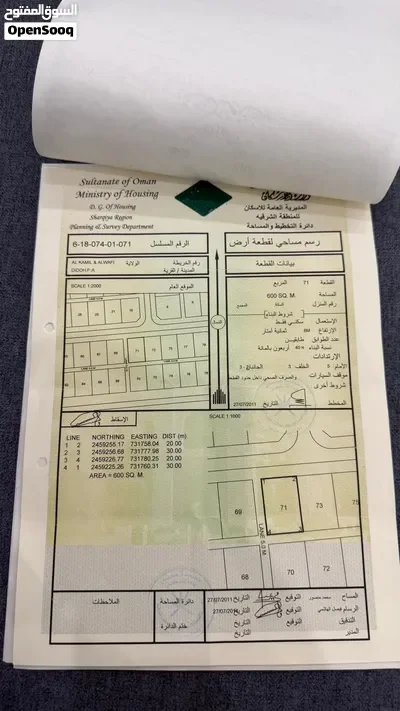 السوق المفتوح
OpenSooq
Sultanate of Oman
Ministry of Housing
D. G. Of Housing
Sharqiya Region
Planning & Survey Department
المديرية العامة للاسكان
للمنطقة الشرقيه
دائرة التخطيط والمساحة
6-18-074-01-071 الرقم المسلسل
رسم مساحي لقطعة أرض
AL KAMIL & ALWAFI الولاية رقم الخريطة
المدينة / القرية
بيانات القطعة
SCALE 1:2000 الموقع العام
القطعة 71 المربع
المساحة 600 SQ. M.
رقم المنزل
شروط البناء
الإستعمال سكني فقط
الإرتفاع ثمانية أمتار
عدد الطوابق طابقين
نسبة البناء 40% أربعون بالمائة
الإرتدادات
الأمام 5 الخلف 3 الجانبان 3
موقف السيارات والصرف الصحي داخل حدود القطعة
شروط أخرى
المخطط التاريخ 27/07/2011
الشمال
الإسقاط
SCALE 1:1000
LINE NORTHING EASTING DIST (m)
1 2 2459255.17 731758.04 20.00
2 3 2459256.68 731777.98 30.00
3 4 2459226.77 731780.25 20.00
4 1 2459225.26 731760.31 30.00
AREA = 600 SQ. M.
69
71
73
75
LANE 5.0 M.
68
70
72
الملاحظات
دائرة المساحة
ختم الدائرة
المساح محمد منصور التوقيع التاريخ 27/07/2011
الرسام فيصل الهاشمي التوقيع التاريخ 27/07/2011
التدقيق التوقيع التاريخ
المدير التاريخ